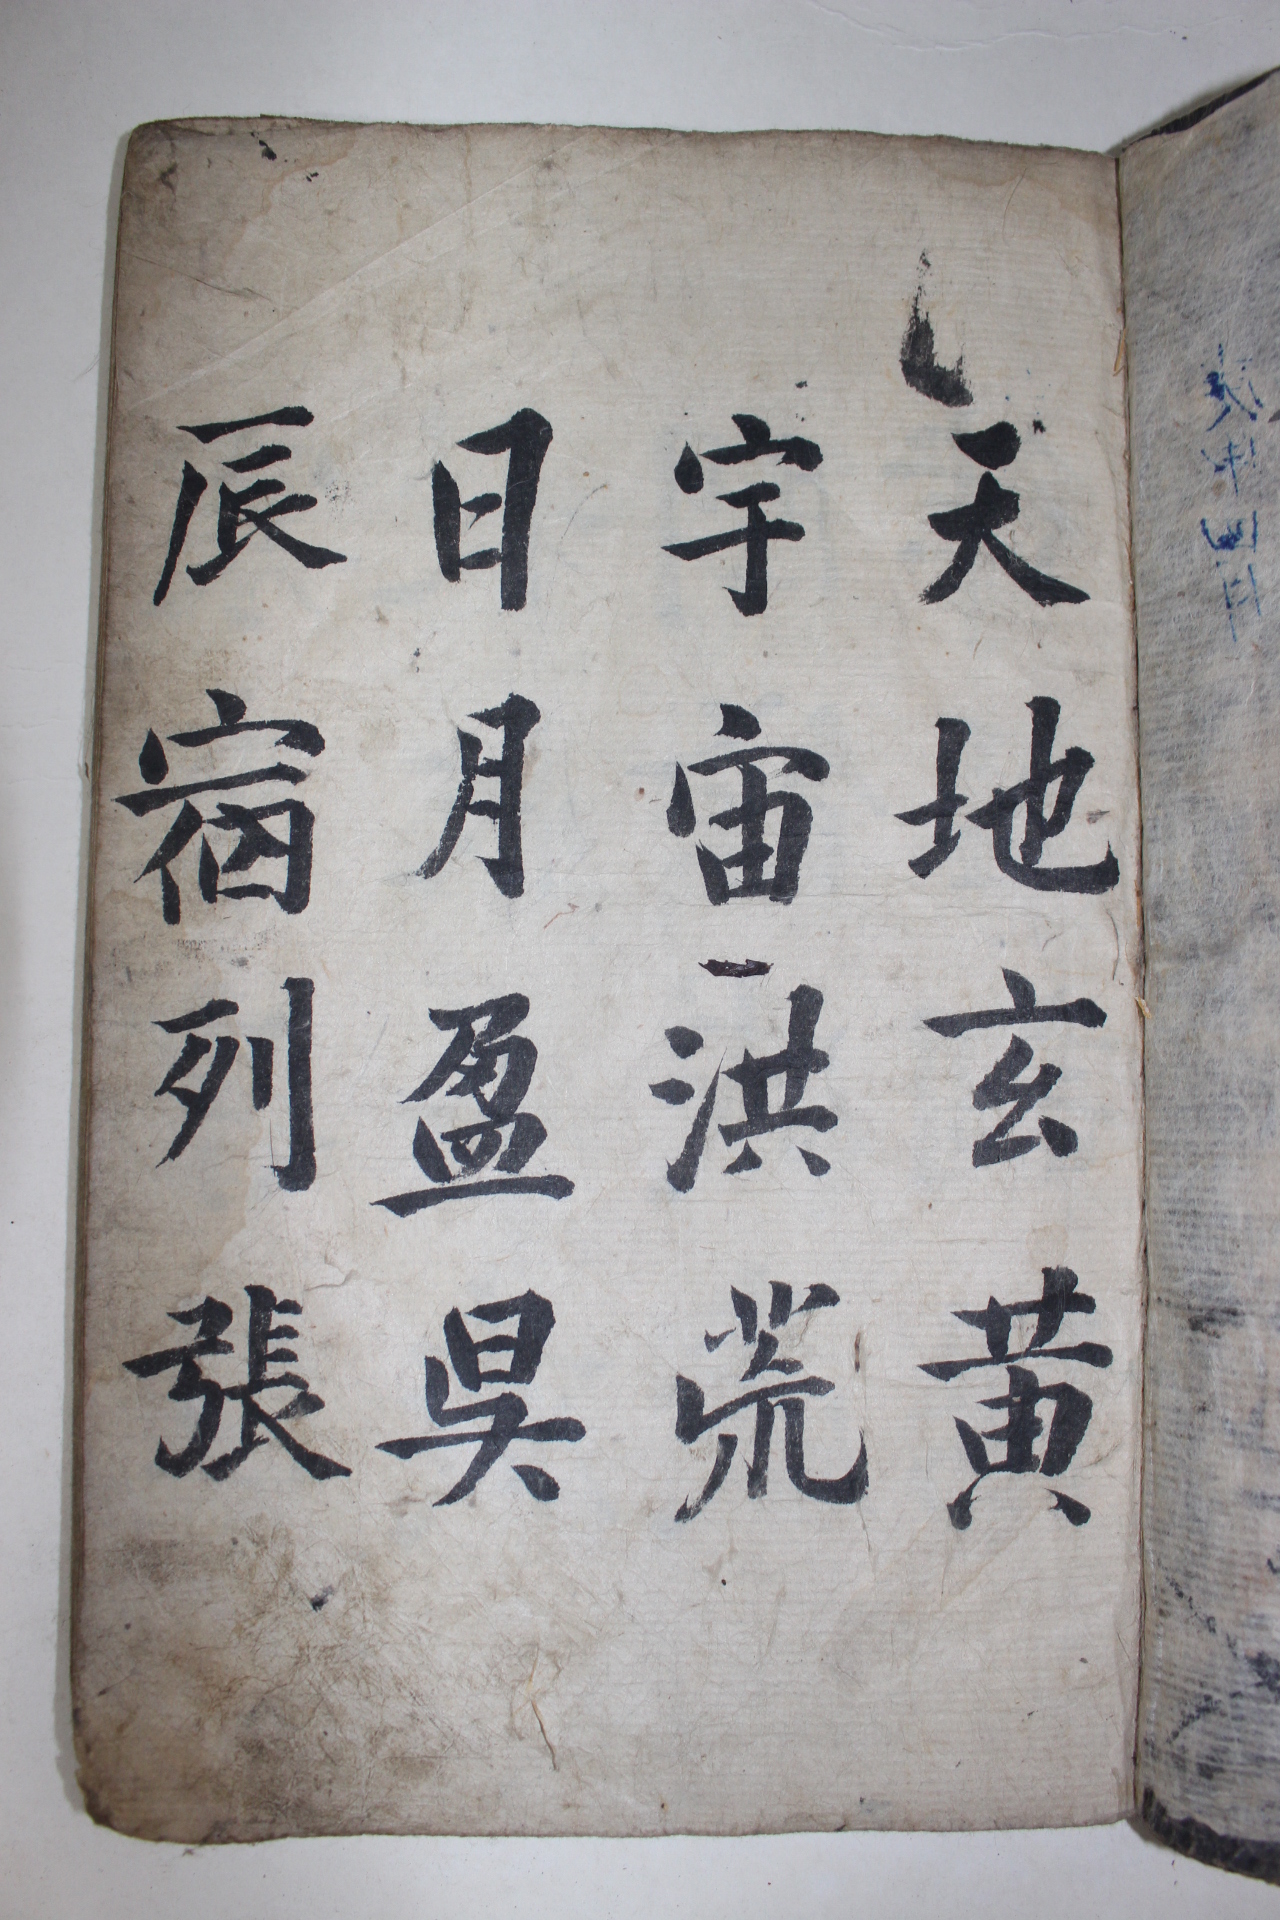 天地玄黄
宇宙洪荒
日月盈昗
辰宿列張